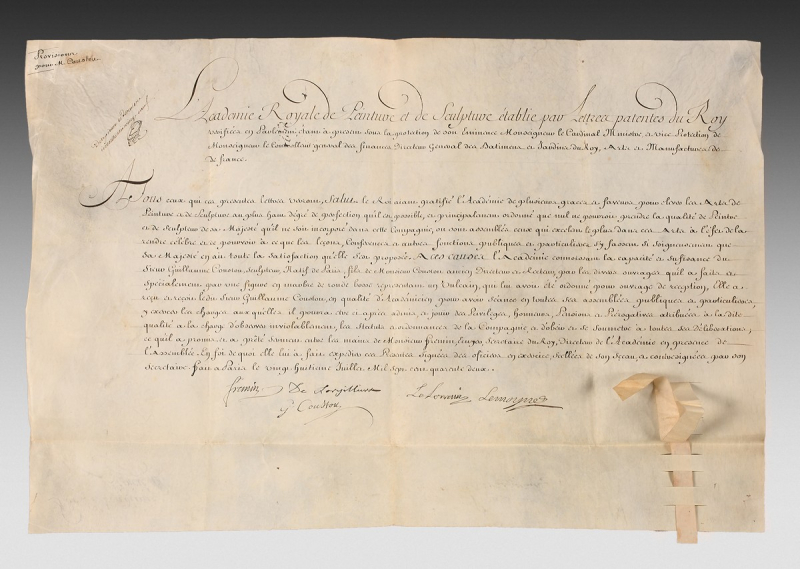 Provisions
pour M. Coustou.
L'Academie Royale de Peinture et de Sculpture établie par Lettres patentes du Roy
verifiées en Parlement, étant à present sous la protection de son Eminence Monseigneur le Cardinal Ministre, a vice Protection de
Monseigneur le Controlleur general des finances Directeur General des Batimens et Jardins du Roy, Arts et Manufactures de
de france.
A Tous ceux qui ces presentes Lettres verront, Salut le Roi aiant gratifié l'Académie de plusieurs graces et faveurs, pour élever les Arts de
Peinture et de Sculpture au plus haut dégré de perfection qu'il est possible, et principalement ordonné que nul ne pouroit prendre la qualité de Peintre
et de Sculpteur de sa Majesté qu'il ne soit incorporé dans cette Compagnie, ou sont assemblés ceux qui excellent le plus dans ces Arts à l'éfet de la
rendre célebre et de pourvoir à ce que les leçons, Conferences et autres fonctions publiques et particulieres s'y fassent si soigneusement que
sa Majesté en ait toute la Satisfaction qu'elle s'en propose. A ces causes l'Académie connoissant la capacité et suffisance du
Sieur Guillaume Coustou Sculpteur, Natif de Paris, fils de Monsieur Coustou ancien Directeur et Recteur, par les divers ouvrages qu'il a faits et
Spécialement par une figure en marbre de ronde bosse representant un Vulcain, qui lui avoit été ordonné pour ouvrage de réception, Elle a
reçu et reçoit ledit Sieur Guillaume Coustou, en qualité d'Académicien pour avoir séance en toutes ses assemblées publiques et particulieres,
y exercer les charges auxquelles il pourra être ci après admis, et jouir des Privileges, honneurs, Pensions et Prérogatives attribuées à la dite
qualité à la charge d'observer inviolablement les Statuts et ordonnances de la Compagnie, d'obeir et se soumettre à toutes ses déliberations,
ce qu'il a promis et a prêté serment entre les mains de Monsieur fremin, Ecuyer, Secretaire du Roy, Directeur de l'Académie en presence de
l'Assemblée. En foi de quoi elle lui a fait expedier ces Presentes Signées des oficiers en exercice, scellées de son Sceau, et contresignées par son
secretaire. fait a Paris le vingt huitieme Juillet Mil sept cent quarante deux.
fremin De Largilliere Le Lorrain Lemoyne
G. Coustou